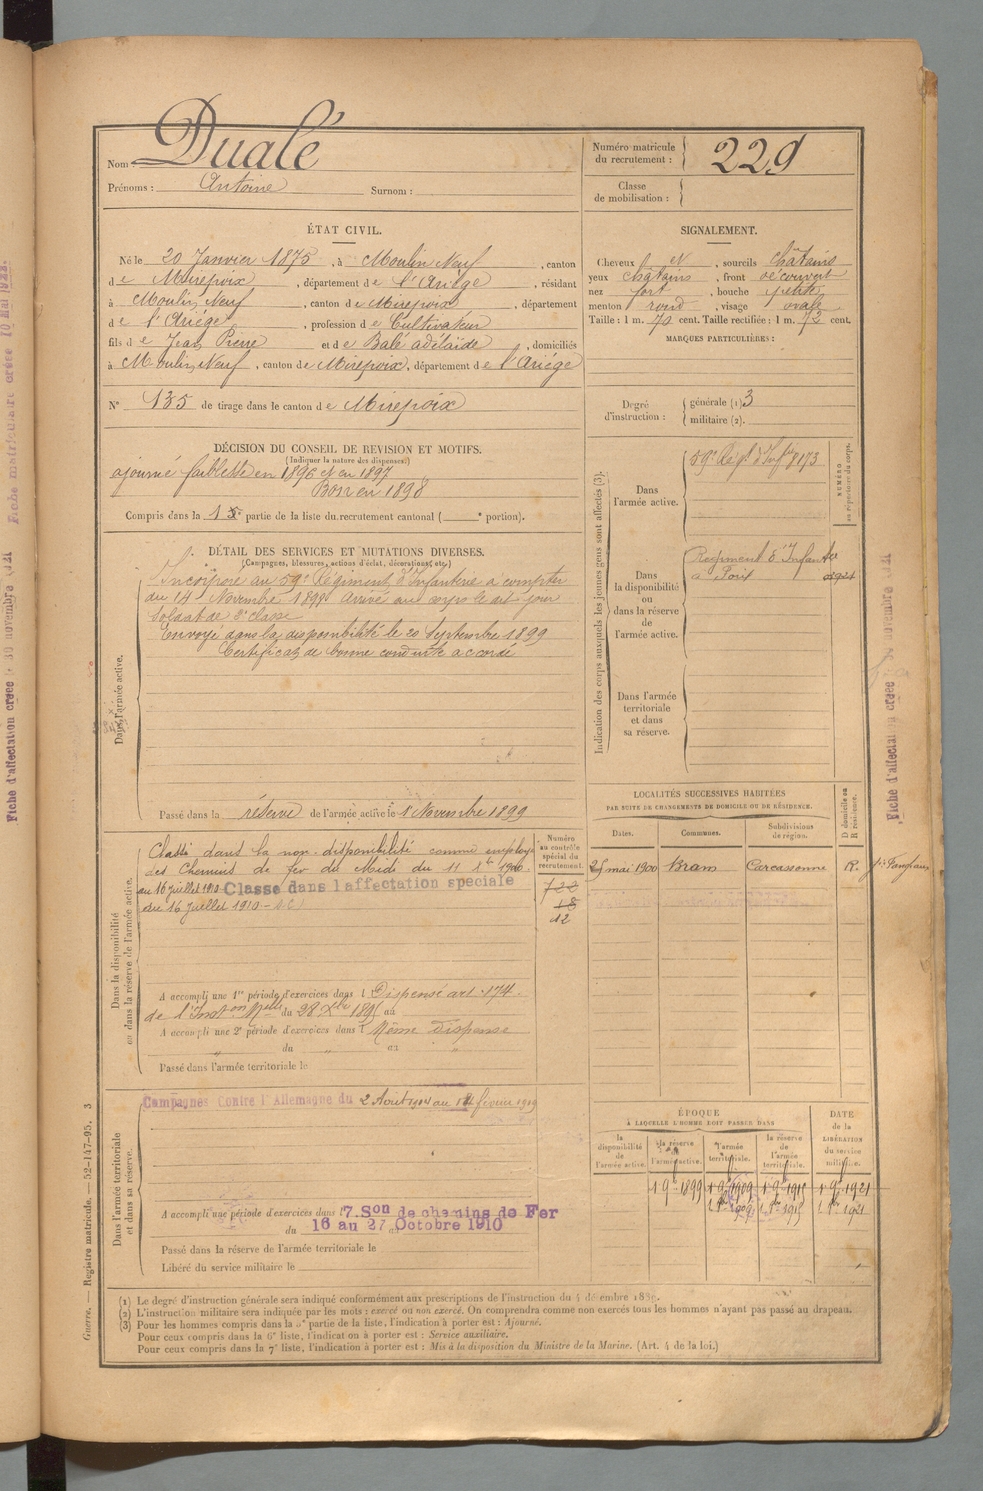 Nom : Dualé
Prénoms : Antoine Surnom :
Numéro matricule du recrutement : 229
Classe de mobilisation :
ÉTAT CIVIL.
Né le 20 Janvier 1875, à Moulin Neuf, canton
de Mirepoix, département de l'Ariège, résidant
à Moulin Neuf, canton de Mirepoix, département
de l'Ariège, profession de Cultivateur
fils de Jean Pierre et de Balé adélaïde, domiciliés
à Moulin Neuf, canton de Mirepoix, département de l'Ariège
N° 135 de tirage dans le canton de Mirepoix
SIGNALEMENT.
Cheveux N, sourcils châtains
yeux châtains, front découvert
nez fort, bouche petite
menton rond, visage ovale
Taille : 1 m. 70 cent. Taille rectifiée : 1 m. 72 cent.
MARQUES PARTICULIÈRES :
Degré d'instruction : générale (1) 3
militaire (2).
DÉCISION DU CONSEIL DE REVISION ET MOTIFS.
(Indiquer la nature des dispenses.)
ajourné faiblesse en 1896 et en 1897
Bon en 1898
Compris dans la partie de la liste du recrutement cantonal ( ° portion).
DÉTAIL DES SERVICES ET MUTATIONS DIVERSES.
(Campagnes, blessures, actions d'éclat, décorations, etc.)
Dans l'armée active.
Incorporé au 59e Régiment d'Infanterie à compter
du 14 Novembre 1898 Arrivé au corps le dit jour
Soldat de 2e classe
Envoyé dans la disponibilité le 20 Septembre 1899
Certificat de bonne conduite accordé
Passé dans la réserve de l'armée active le 1 Novembre 1899
Indication des corps auxquels les jeunes gens sont affectés (3).
NUMÉRO au répertoire du corps.
Dans l'armée active.
59e Régt d'Infie 8173
Dans la disponibilité ou dans la réserve de l'armée active.
Régiment d'Infanterie
à Foix
Dans l'armée territoriale et dans sa réserve.
LOCALITÉS SUCCESSIVES HABITÉES
PAR SUITE DE CHANGEMENTS DE DOMICILE OU DE RÉSIDENCE.
Dates. Communes. Subdivisions de région. D domicile ou R résidence.
25 mai 1900 Bram Carcassonne R.
Dans la disponibilité ou dans la réserve de l'armée active.
Numéro au contrôle spécial du recrutement.
Classé dans la non-disponibilité comme employé
des Chemins de fer du Midi du 11 1900
au 16 juillet 1910 Classé dans l'affectation spéciale
du 16 juillet 1910
720
18
12
A accompli une 1re période d'exercices dans l Dispensé art. 174
de l'Inston Melle du 28 Xbre 1895 au
A accompli une 2e période d'exercices dans l Même dispense
du „ au „
Passé dans l'armée territoriale le
Dans l'armée territoriale et dans sa réserve.
Campagnes Contre l'Allemagne du 2 Août 1914 au 14 février 1919
A accompli une période d'exercices dans l 7. Son de chemins de Fer
du 16 au 27 Octobre 1910
Passé dans la réserve de l'armée territoriale le
Libéré du service militaire le
ÉPOQUE
À LAQUELLE L'HOMME DOIT PASSER DANS
la disponibilité de l'armée active. la réserve de l'armée active. l'armée territoriale. la réserve de l'armée territoriale.
DATE de la LIBÉRATION du service militaire.
1 9bre 1899 1 9bre 1909 1 9bre 1915 1 9bre 1921
(1) Le degré d'instruction générale sera indiqué conformément aux prescriptions de l'instruction du 4 décembre 1889.
(2) L'instruction militaire sera indiquée par les mots : exercé ou non exercé. On comprendra comme non exercés tous les hommes n'ayant pas passé au drapeau.
(3) Pour les hommes compris dans la 5e partie de la liste, l'indication à porter est : Ajourné.
Pour ceux compris dans la 6e liste, l'indication à porter est : Service auxiliaire.
Pour ceux compris dans la 7e liste, l'indication à porter est : Mis à la disposition du Ministre de la Marine. (Art. 4 de la loi.)
Guerre. — Registre matricule. — 52-147-95. 3
Fiche d'affectation créée le 30 novembre
Fiche matriculaire créée 10 Mai 1922.
Fiche d'affectation créée novembre